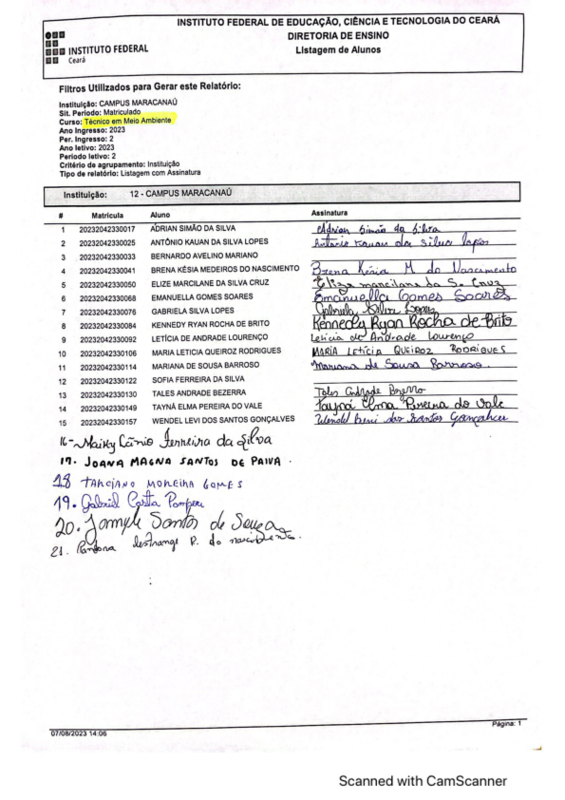 INSTITUTO FEDERAL DE EDUCAÇÃO, CIÊNCIA E TECNOLOGIA DO CEARÁ
DIRETORIA DE ENSINO
Listagem de Alunos
INSTITUTO FEDERAL
Ceará
Filtros Utilizados para Gerar este Relatório:
Instituição: CAMPUS MARACANAÚ
Sit. Período: Matriculado
Curso: Técnico em Meio Ambiente
Ano Ingresso: 2023
Per. Ingresso: 2
Ano letivo: 2023
Período letivo: 2
Critério de agrupamento: Instituição
Tipo de relatório: Listagem com Assinatura
Instituição: 12 - CAMPUS MARACANAÚ
# Matrícula Aluno Assinatura
1 20232042330017 ADRIAN SIMÃO DA SILVA Adrian Simão da Silva
2 20232042330025 ANTÔNIO KAUAN DA SILVA LOPES Antônio Kauan da Silva Lopes
3 20232042330033 BERNARDO AVELINO MARIANO
4 20232042330041 BRENA KÉSIA MEDEIROS DO NASCIMENTO Brena Késia M. do Nascimento
5 20232042330050 ELIZE MARCILANE DA SILVA CRUZ Elize marcilane da S. Cruz
6 20232042330068 EMANUELLA GOMES SOARES Emanuella Gomes Soares
7 20232042330076 GABRIELA SILVA LOPES Gabriela Silva Lopes
8 20232042330084 KENNEDY RYAN ROCHA DE BRITO Kennedy Ryan Rocha de Brito
9 20232042330092 LETÍCIA DE ANDRADE LOURENÇO Letícia de Andrade Lourenço
10 20232042330106 MARIA LETICIA QUEIROZ RODRIGUES MARIA LETÍCIA QUEIROZ RODRIGUES
11 20232042330114 MARIANA DE SOUSA BARROSO Mariana de Sousa Barroso.
12 20232042330122 SOFIA FERREIRA DA SILVA
13 20232042330130 TALES ANDRADE BEZERRA Tales Andrade Bezerra
14 20232042330149 TAYNÁ ELMA PEREIRA DO VALE Tayná Elma Pereira do Vale
15 20232042330157 WENDEL LEVI DOS SANTOS GONÇALVES Wendel Levi dos Santos Gonçalves
16- Ferreira da Silva
17. JOANA MAGNA SANTOS DE PAIVA.
18 TARCIANO MOREIRA GOMES
19. Gabriel Costa Pompeu
20. Jamyle Santos de Souza
21. Pandora lestrange R. do nascimento.
07/08/2023 14:06
Página: 1
Scanned with CamScanner